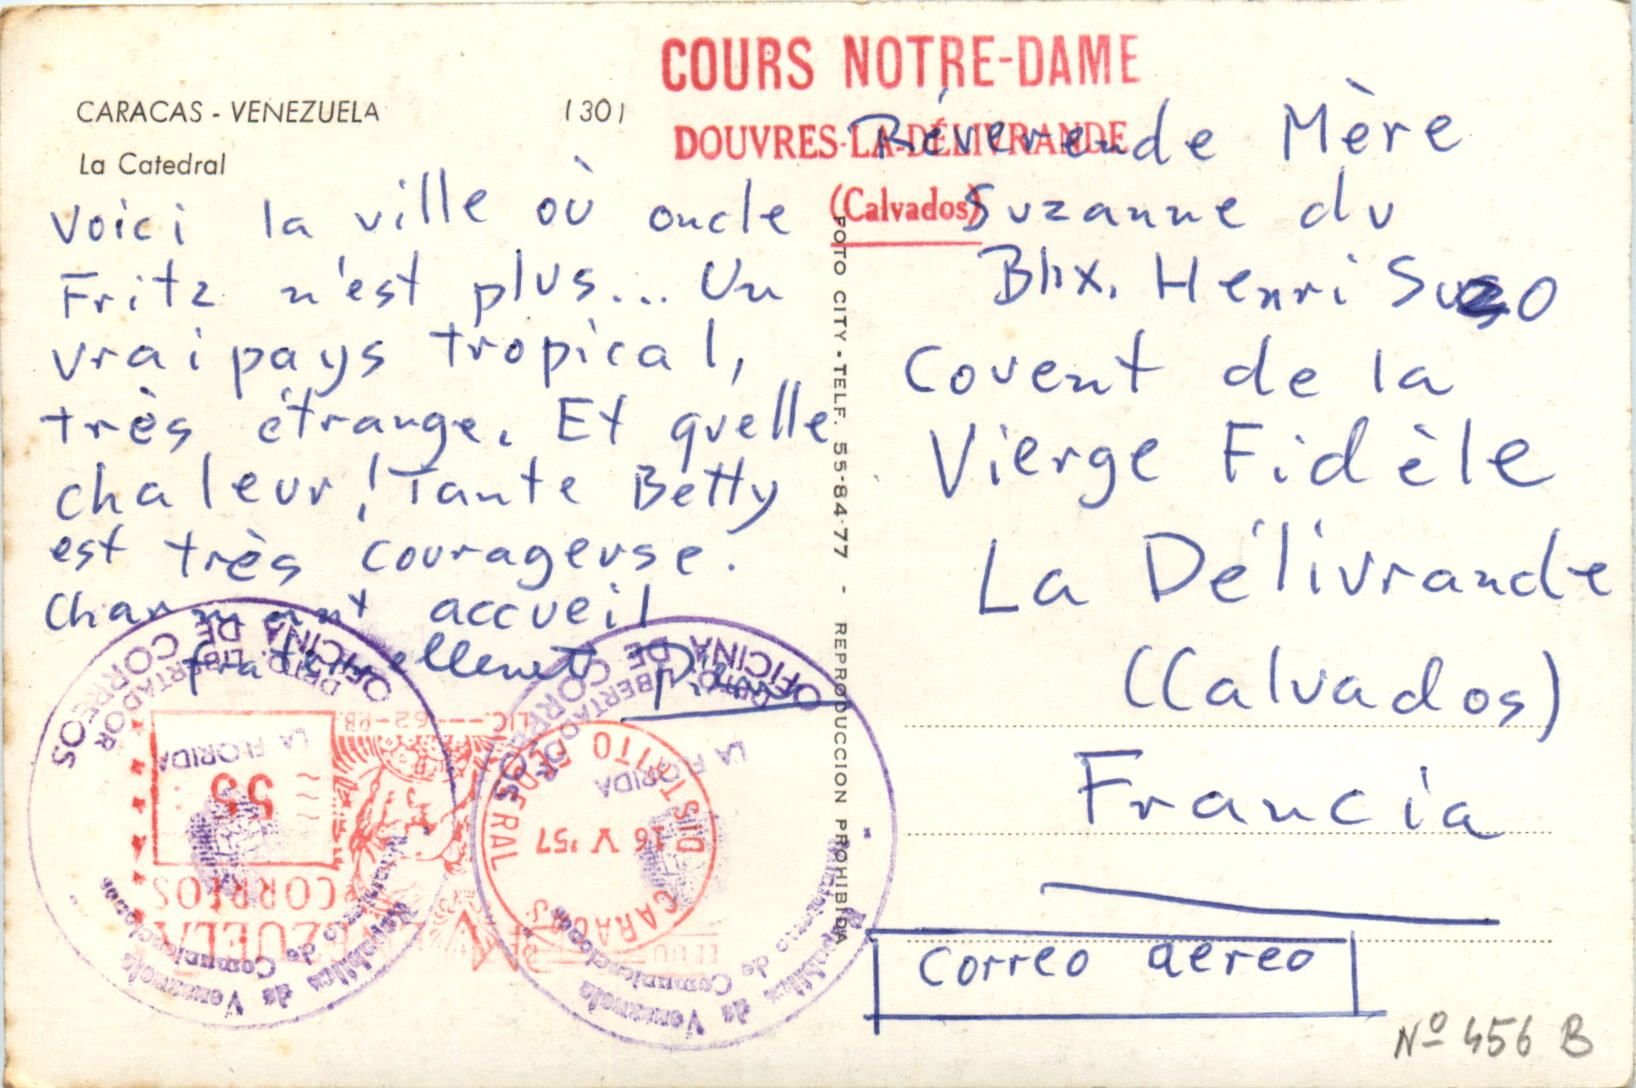 CARACAS - VENEZUELA (30)
La Catedral
Voici la ville où oncle
Fritz n'est plus... Un
vrai pays tropical,
très étrange. Et quelle
chaleur! Tante Betty
est très courageuse.
Charmant accueil
fraternellement
COURS NOTRE-DAME
DOUVRES-LA-DÉLIVRANDE
(Calvados)
Révérende Mère
Suzanne du
Bhx. Henri Suzo
Covent de la
Vierge Fidèle
La Délivrande
(Calvados)
Francia
correo aereo
Nº 456 B
FOTO CITY - TELF. 55-84-77 - REPRODUCCION PROHIBIDA
OFICINA DE CORREOS
DPTO. LIBERTADOR
LA FLORIDA
República de Venezuela
Ministerio de Comunicaciones
OFICINA DE CORREOS
DPTO. LIBERTADOR
LA FLORIDA
República de Venezuela
Ministerio de Comunicaciones
EE. UU. DE VENEZUELA
CORREOS
55
LIC. --- 62-PB.
CARACAS
16 V '57
DISTRITO FEDERAL